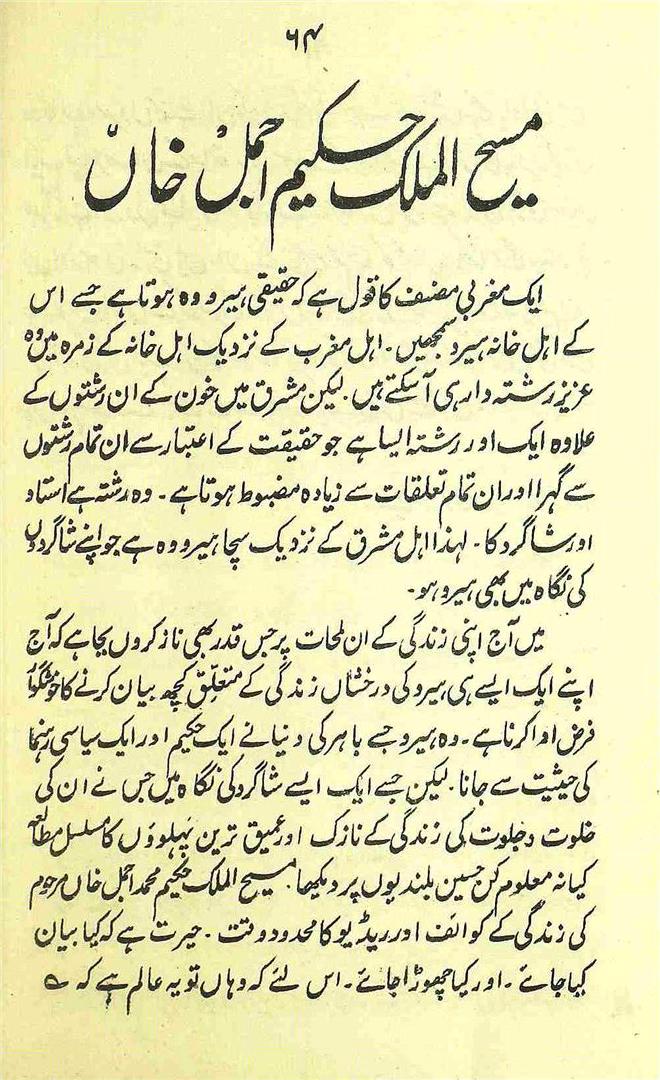 ۶۴
مسیح الملک حکیم اجمل خاں
ایک مغربی مصنف کا قول ہے کہ حقیقی ہیرو وہ ہوتا ہے جسے اس
کے اہل خانہ ہیرو سمجھیں۔ اہل مغرب کے نزدیک اہل خانہ کے زمرہ میں وہ
عزیز رشتہ دار ہی آ سکتے ہیں۔ لیکن مشرق میں خون کے ان رشتوں کے
علاوہ ایک اور رشتہ ایسا ہے جو حقیقت کے اعتبار سے ان تمام رشتوں
سے گہرا اور ان تمام تعلقات سے زیادہ مضبوط ہوتا ہے۔ وہ رشتہ ہے استاد
اور شاگرد کا۔ لہذا اہل مشرق کے نزدیک سچا ہیرو وہ ہے جو اپنے شاگردوں
کی نگاہ میں بھی ہیرو ہو۔
میں آج اپنی زندگی کے ان لمحات پر جس قدر بھی ناز کروں بجا ہے کہ آج
اپنے ایک ایسے ہی ہیرو کی درخشاں زندگی کے متعلق کچھ بیان کرنے کا خوشگوار
فرض ادا کرنا ہے۔ وہ ہیرو جسے باہر کی دنیا نے ایک حکیم اور ایک سیاسی رہنما
کی حیثیت سے جانا۔ لیکن جسے ایک ایسے شاگرد کی نگاہ میں جس نے ان کی
خلوت و جلوت کی زندگی کے نازک اور عمیق ترین پہلوؤں کا مسلسل مطالعہ
کیا نہ معلوم کن حسین بلندیوں پر دیکھا۔ مسیح الملک حکیم محمد اجمل خاں مرحوم
کی زندگی کے کوائف اور ریڈیو کا محدود وقت۔ حیرت ہے کہ کیا بیان
کیا جائے۔ اور کیا چھوڑا جائے۔ اس لئے کہ وہاں تو یہ عالم ہے کہ ؎